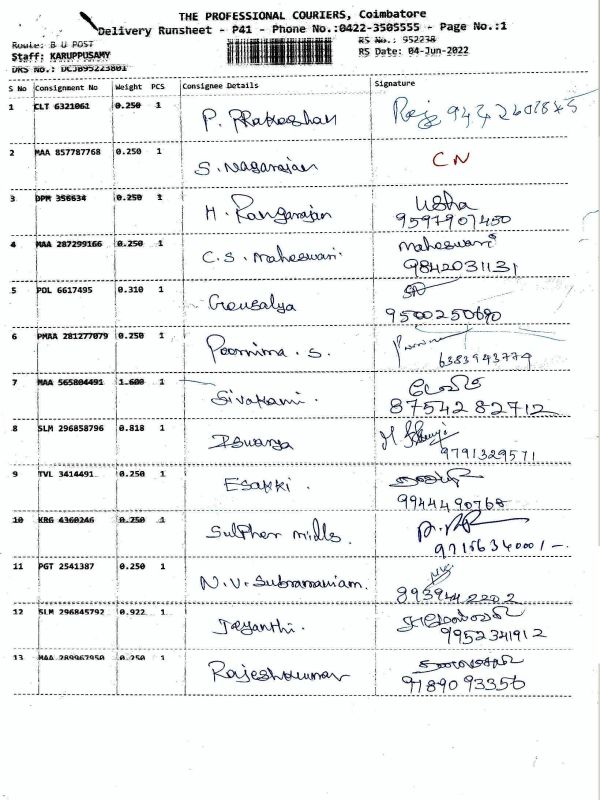 THE PROFESSIONAL COURIERS, Coimbatore
Delivery Runsheet - P41 - Phone No.:0422-3505555 - Page No.:1
Route: B U POST RS No.: 952238
Staff: KARUPPUSAMY RS Date: 04-Jun-2022
DRS No.: DCJB95223801
S No Consignment No Weight PCS Consignee Details Signature
1 CLT 6321061 0.250 1 P. Prakashan
2 MAA 857787768 0.250 1 S. Nagarajan CN
3 DPM 356634 0.250 1 H. Rangarajan Usha
9597907450
4 MAA 287299166 0.250 1 C.S. Maheswari. Maheswari
9842031131
5 POL 6617495 0.310 1 Gousalya
9500250690
6 PMAA 281277079 0.250 1 Poornima . S.
6383943774
7 MAA 565804491 1.600 1 Sivakami.
87542 82712
8 SLM 296858796 0.818 1
9791329571
9 TVL 3414491 0.250 1 Esakki .
9944490768
10 KRG 4360246 0.250 1 Sulpher mills.
97156340001 -
11 PGT 2541387 0.250 1 N.V. Subramaniam.
8939442202
12 SLM 296845792 0.922 1 Jayanthi.
9952341912
13 MAA 289967950 0.250 1 Rajeshkumar
9189093356